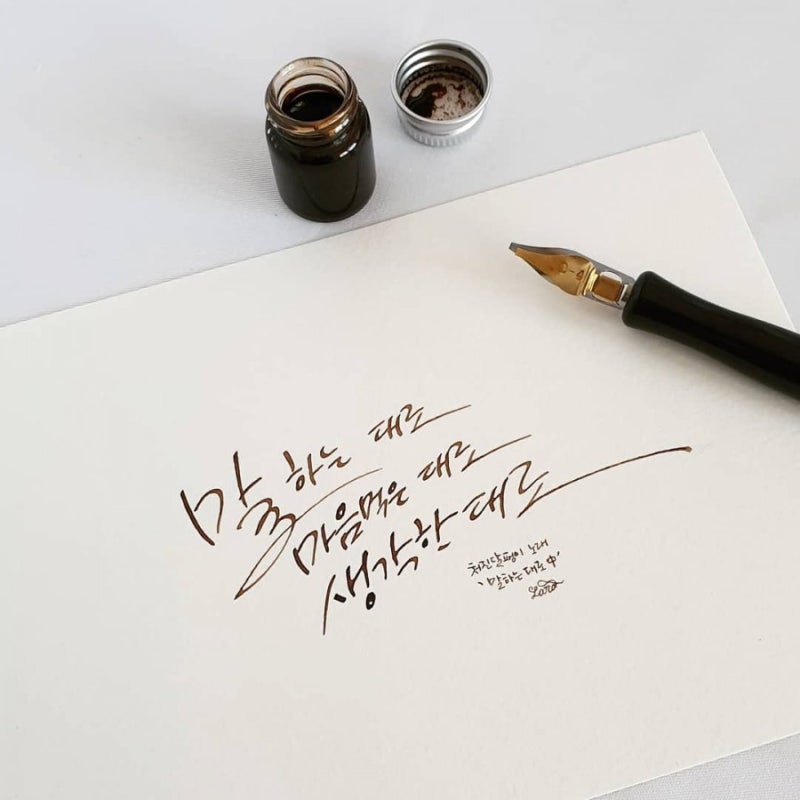 말하는 대로
마음먹은 대로
생각한 대로
처진달팽이 노래
'말하는 대로 中'
Lara